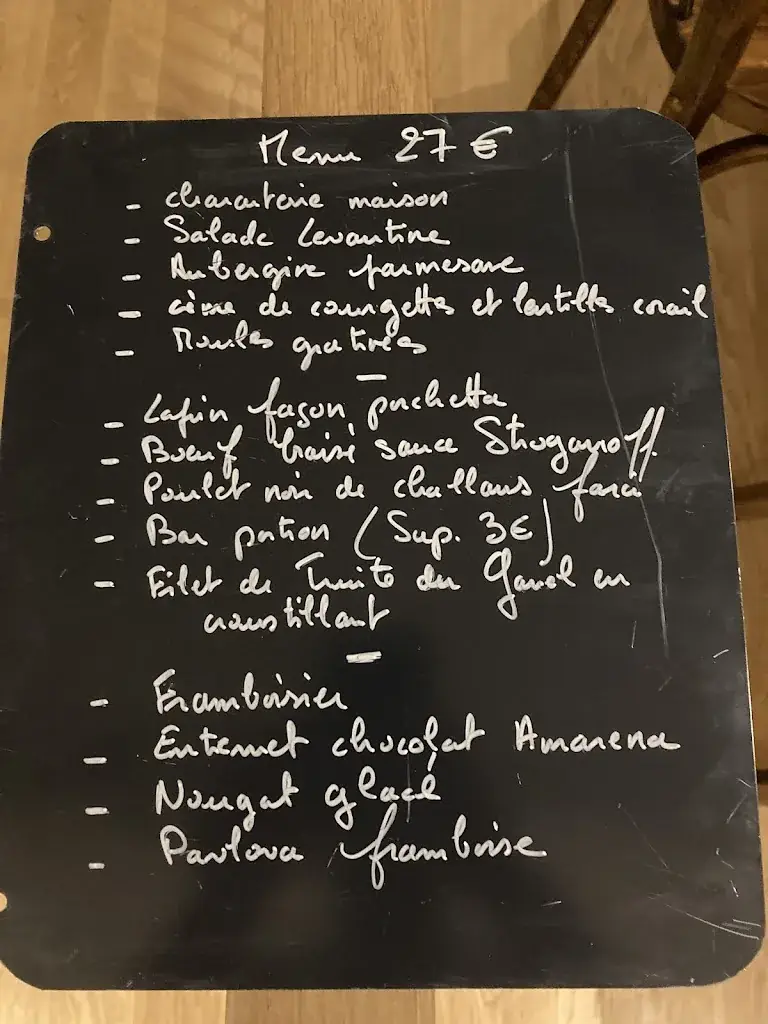 Menu 27 €
- charcuterie maison
- Salade Levantine
- Aubergine parmesane
- crème de courgettes et lentilles corail
- Moules gratinées
-
- Lapin façon porchetta
- Boeuf braisé sauce Stroganoff
- Poulet noir de challans farci
- Bar portion (Sup. 3€)
- Filet de Truite du en
croustillant
-
- Framboisier
- Entremet chocolat Amarena
- Nougat glacé
- Pavlova framboise